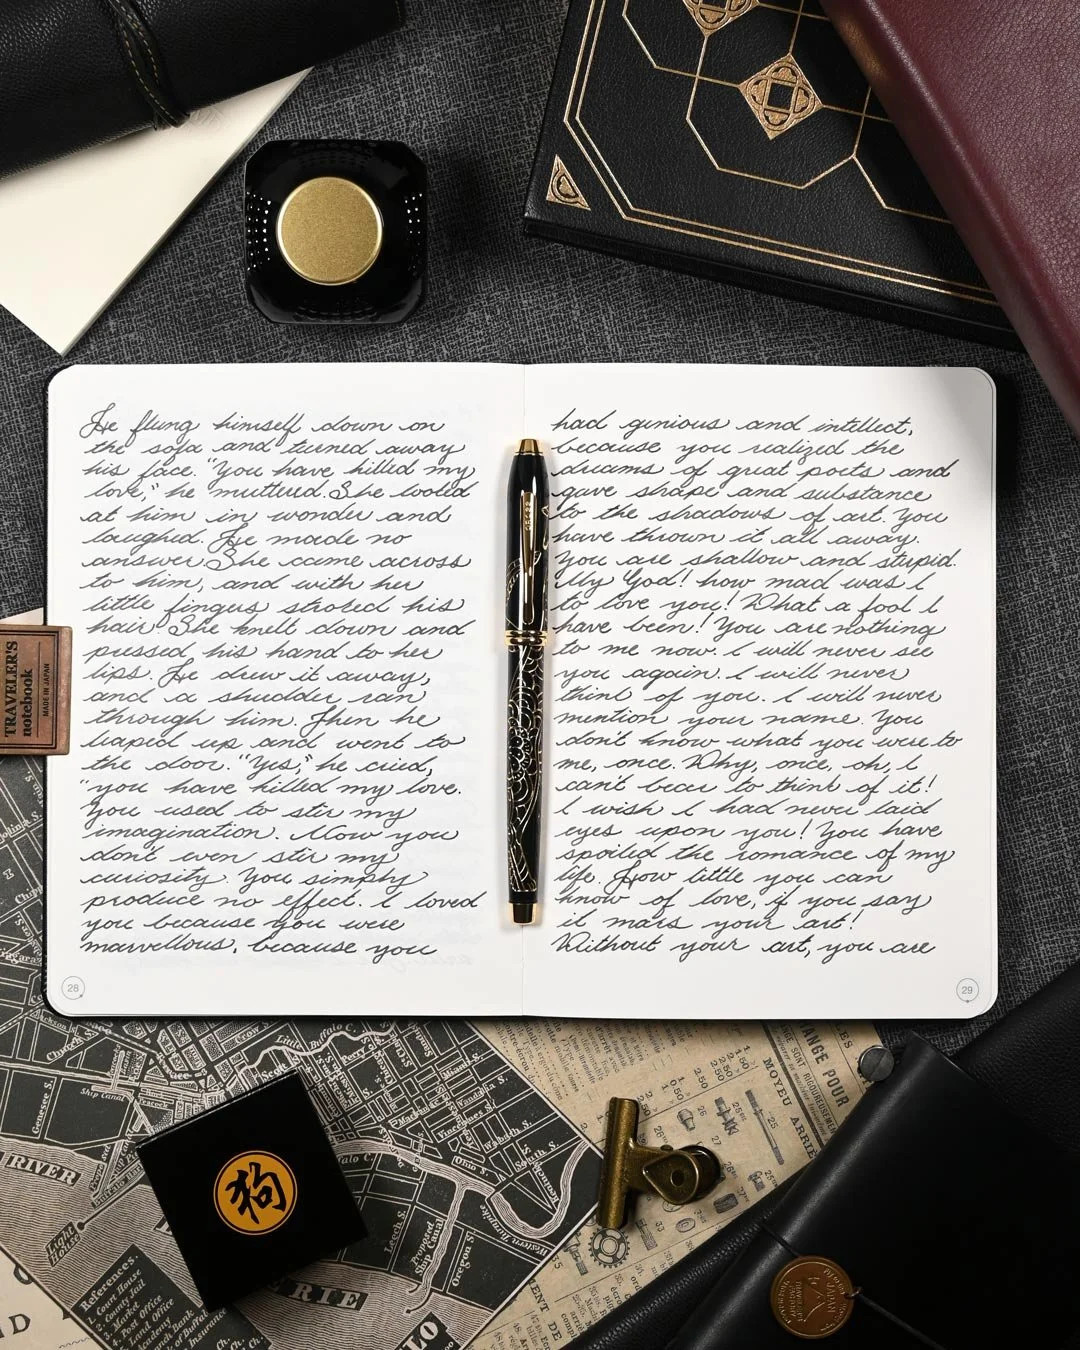 He flung himself down on
the sofa and turned away
his face. "You have killed my
love," he muttered. She looked
at him in wonder and
laughed. He made no
answer. She came across
to him, and with her
little fingers stroked his
hair. She knelt down and
pressed his hand to her
lips. He drew it away,
and a shudder ran
through him. Then he
leaped up and went to
the door. "Yes," he cried,
"you have killed my love.
You used to stir my
imagination. Now you
don't even stir my
curiosity. You simply
produce no effect. I loved
you because you were
marvellous, because you
28
had genious and intellect,
because you realized the
dreams of great poets and
gave shape and substance
to the shadows of art. You
have thrown it all away.
You are shallow and stupid.
My God! how mad was I
to love you! What a fool I
have been! You are nothing
to me now. I will never see
you again. I will never
think of you. I will never
mention your name. You
don't know what you were to
me, once. Why, once, oh, I
can't bear to think of it!
I wish I had never laid
eyes upon you! You have
spoiled the romance of my
life. How little you can
know of love, if you say
it mars your art!
Without your art, you are
29
CROSS
TRAVELER'S
notebook
MADE IN JAPAN
Church S.
Genesee S.
Ship Canal
RIVER
Light
House
Little Buffalo C.
Perry S.
Scott S.
Miami S.
Mackinaw S.
Vandalia S.
Vincennes S.
Wabash S.
South S.
Ohio S.
Buffalo C.
Leech S.
Proposed
Ship Canal
Oregon S.
Western Turnpike
Kearney S.
ERIE
References.
1. Court House
2. County Jail
3. Post Office
4. Market Office
狗
MOYEU ARRIÈ
POUR
SONT RIGOUREUSEMENT
25
26
27
35
JAPAN